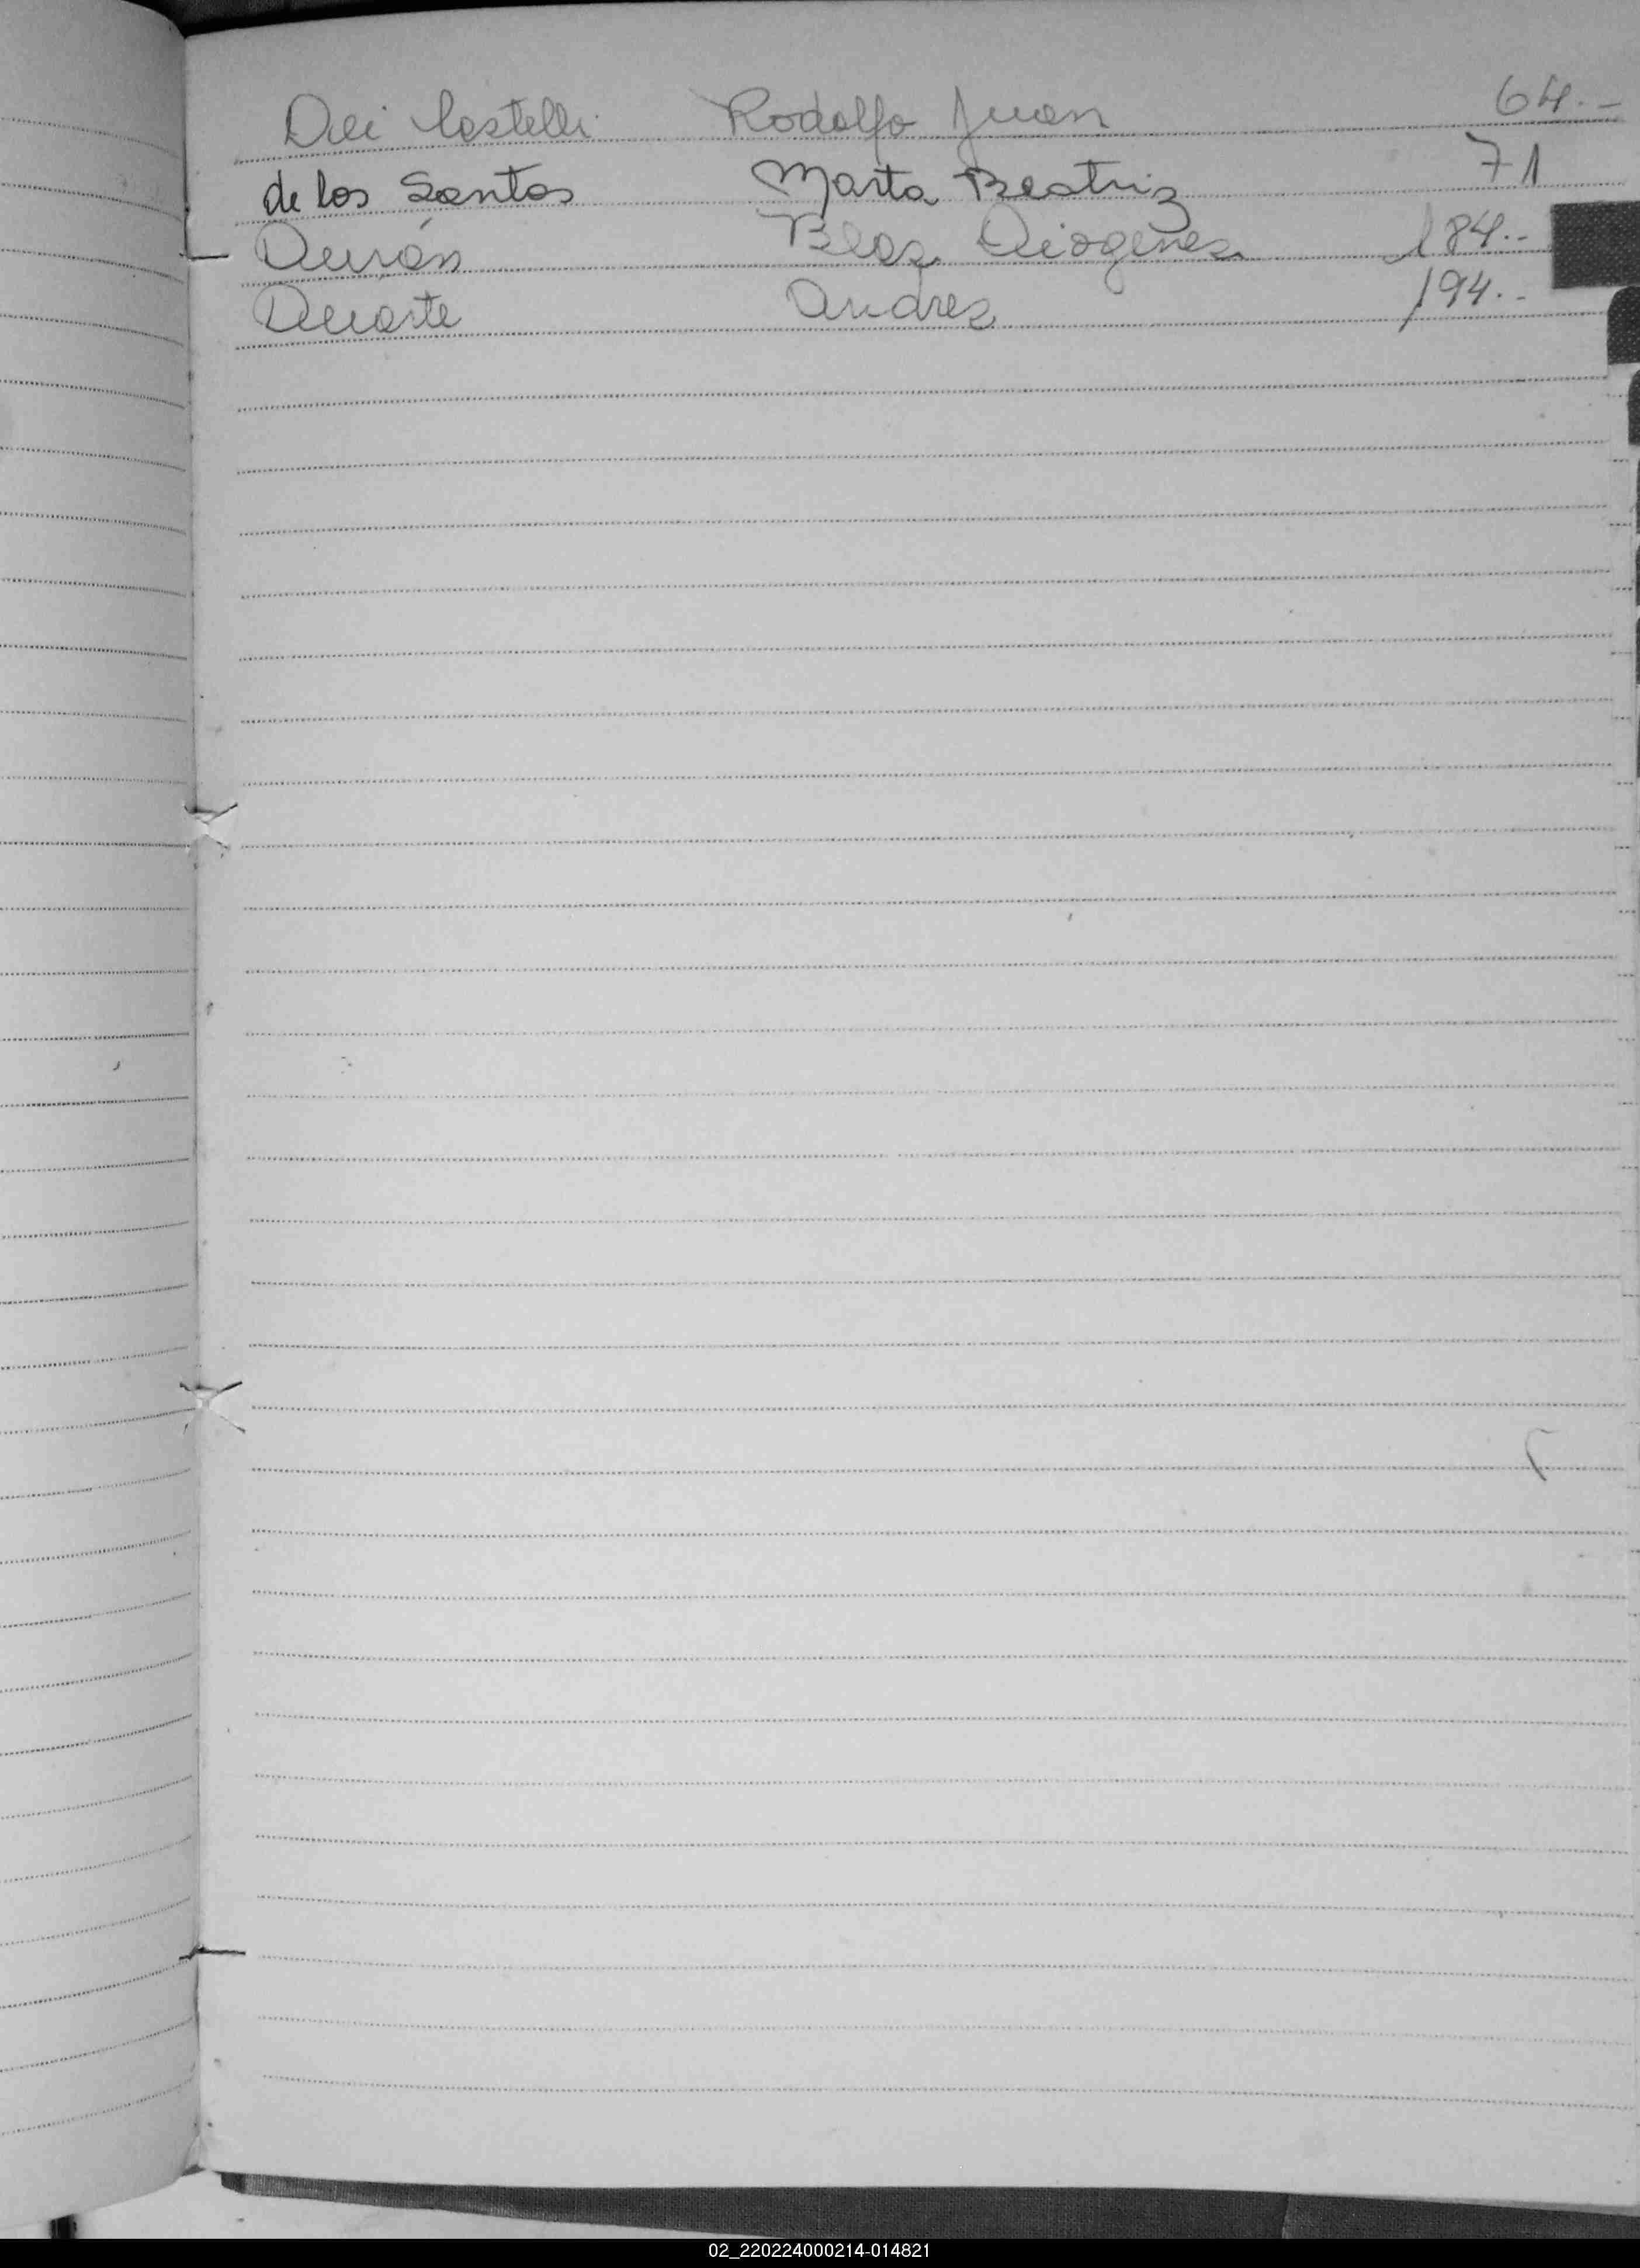 Dei Castelli Rodolfo Juan 64.-
de los Santos Marta Beatriz 71
Durán Blas Diogenes 184.-
Duarte Andres 194.-
02_220224000214-014821